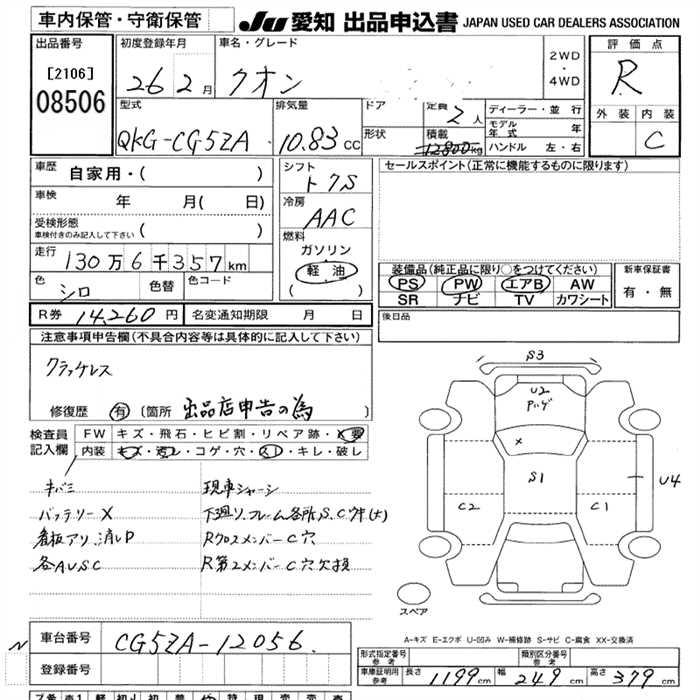 車内保管・守衛保管 JU 愛知 出品申込書 JAPAN USED CAR DEALERS ASSOCIATION
出品番号 初度登録年月 車名・グレード 評価点
[2106] 26 2月 クオン 2WD・4WD R
08506
型式 排気量 ドア 定員 2人 ディーラー・並行 外装 内装
QKG-CG5ZA 10.83 CC 形状 積載 12800kg モデル年式 年 C
ハンドル 左・右
車歴 自家用・( ) シフト ト7S セールスポイント(正常に機能するものに限ります)
車検 年 月( 日) 冷房 AAC
受検形態 ( )
車検付きのみ記入して下さい
燃料 ガソリン
走行 130万6千357km 軽油
( )
装備品(純正品に限り○をつけてください) 新車保証書
PS PW エアB AW 有・無
SR ナビ TV カワシート
色 シロ 色替 色コード
R券 14,260円 名変通知期限 月 日 後日品
注意事項申告欄(不具合内容等は具体的に記入して下さい)
クラッチレス
修復歴 有 (箇所 出品店申告の為 )
検査員記入欄 FW キズ・飛石・ヒビ割・リペア跡・X要
内装 キズ・汚レ・コゲ・穴・スレ・キレ・破レ
キバミ 現車シャーシ
バッテリーX 下廻リ、フレーム各所S、C、穴(大)
看板アリ、消しP Rクロスメンバー C穴
各AUSC R第2メンバー C穴欠損
S3
U2
S1
U4
C2 C1
スペア
A-キズ E-エクボ U-凹み W-補修跡 S-サビ C-腐食 XX-交換済
車台番号 CG5ZA-12056
登録番号
形式指定番号 参考 類別区分番号 参考
車庫証明用 参考 長さ 1199cm 幅 249cm 高さ 379cm